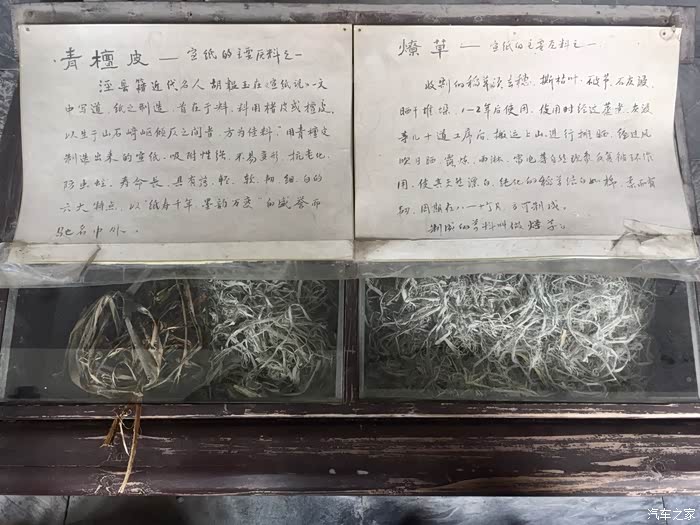 青檀皮——宣纸的主要原料之一
泾县籍近代名人胡韫玉在《宣纸说》一文
中写道,纸之制造,首在于料,料用楮皮或檀皮,
以生于山石崎岖倾仄之间者,方为佳料。"用青檀皮
制造出来的宣纸,吸附性强,不易变形,抗老化,
防虫蛀,寿命長,具有 轻、软、韧、细、白的
六大特点,以"纸寿千年,墨韵万变"的誉而
驰名中外。
燎草——宣纸的主要原料之一
收割的稻草须去穗,撕枯叶,破节,石灰浸,
晒干堆垛,1-2年后使用,使用时经过蒸煮、灰浸
等几十道工序后,搬运上山,进行摊晒,经过风
吹日晒,雨淋,自然 作
用,使其天然漂白,纯化的稻草洁白如棉,柔而有
韧,周期在八—十个月方可制成。
制成的草料叫做燎草。
汽车之家